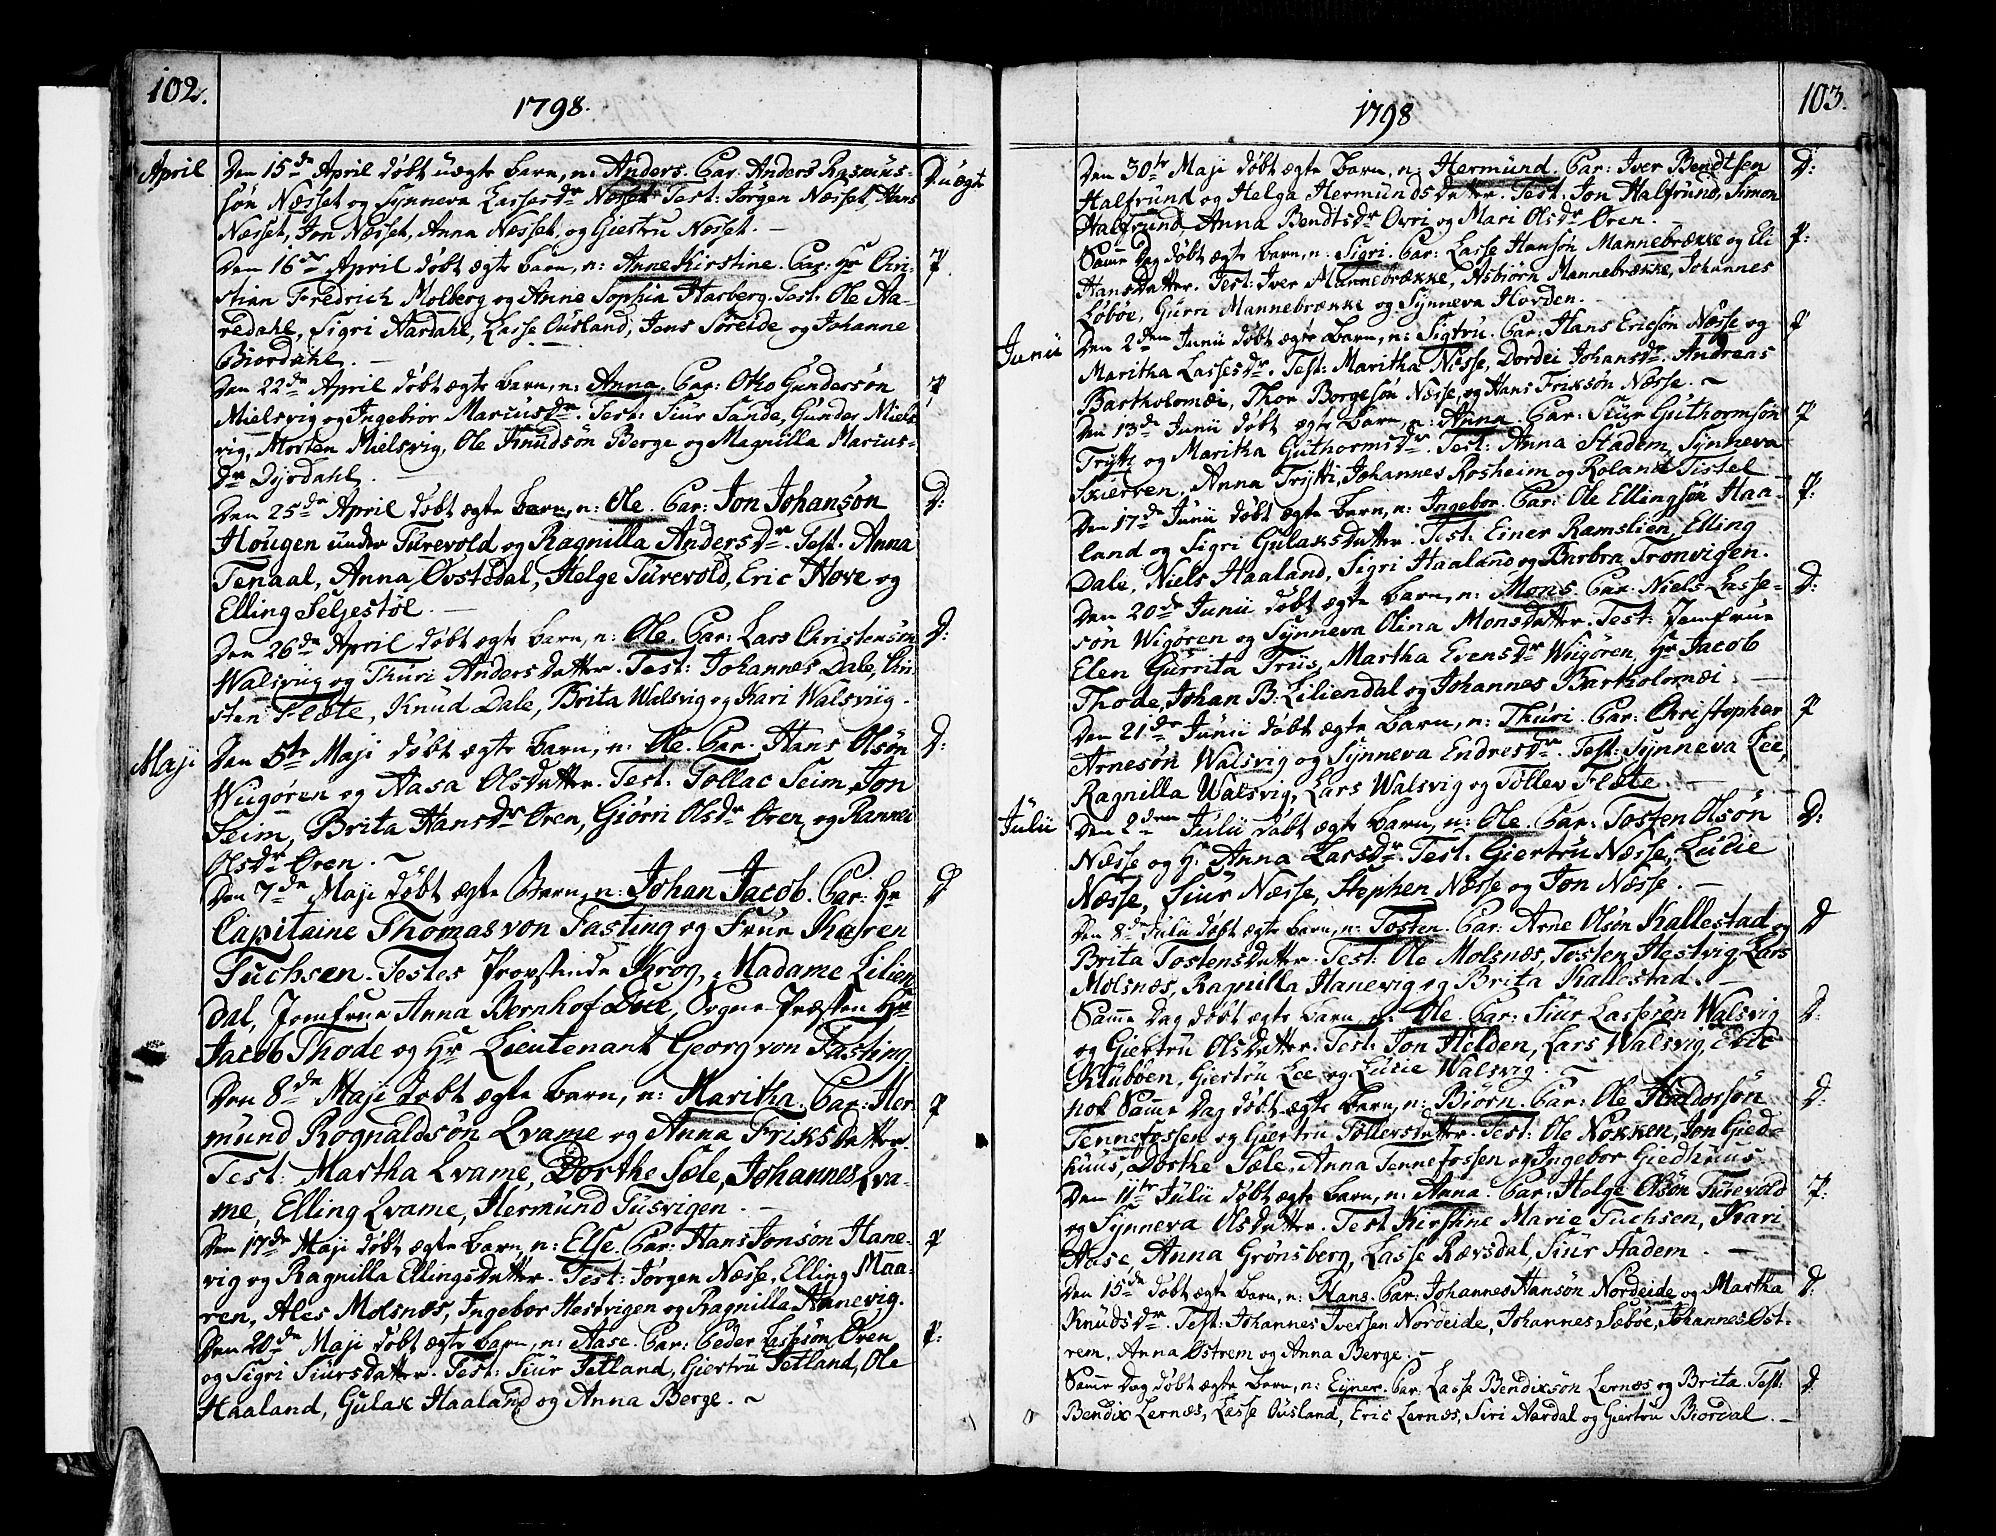 102.
1798.
April
Den 15de April døbt uægte Barn, n: Anders. Par: Anders Rasmus-
D: uægt
søn Næsset og Synneva Lassesdr Næsset. Test: Jørgen Næsset, Hans
Næsset, Jon Næsset, Anna Næsset, og Giertru Næsset. -
Den 16de April døbt ægte Barn, n: Anne Kirstine. Par: Hr Chri-
P.
stian Fredrich Molberg og Anne Sophia Harberg. Test: Ole Aa-
redahl, Sigri Aardahl, Lasse Ousland, Jens Søreide og Johanne
Biordahl. -
Den 22de April døbt ægte Barn, n: Anna. Par: Otto Gundersøn
P
Mielsvig og Ingebior Mariusdr. Test: Siur Sande, Gunder Miels-
vig, Morten Mielsvig, Ole Knudsøn Berge og Magnilla Marius-
dr Dyrdahl. -
Den 25de April døbt ægte Barn, n: Ole. Par: Jon Johansøn
D:
Hougen under Turevold og Ragnilla Andersdr. Test. Anna
Tenaal, Anna Øvstedal, Helge Turevold, Eric Hove og
Elling Seljestøl. -
Den 26de April døbt ægte Barn, n: Ole. Par: Lars Christensøn
D:
Walsviig og Thuri Andersdatter. Test: Johannes Dale, Chri-
sten Flete, Knud Dale, Brita Walsvig og Kari Walsviig.
Maji
Den 5te Maji døbt ægte Barn, n: Ole. Par: Hans Olsøn
D:
Wiigøren og Aasa Olsdatter. Test: Tollac Seim, Jon
Seim, Brita Hansdr Øren, Giøri Olsdr Øren, og Rannei
Olsdr Øren. ~
Den 7de Maji døbt ægte Barn, n: Johan Jacob. Par: Hr
D
Capitaine Thomas von Fasting og Frue Karen
Fuchsen. Testes Provstinde Krog, Madame Lilien-
dal, Jomfrue Anna Bernhof Due, Sogne Præsten Hr
Jacob Thode og Hr Lieutenant Georg von Fasting
Den 8de Maji døbt ægte Barn, n: Maritha. Par: Her-
P
mund Rognaldsøn Qvame og Anna Friksdatter.
Test: Martha Qvame, Dorthe Sæle, Johannes Qva-
me, Elling Qvame, Hermund Tusvigen. -
Den 17de Maji døbt ægte Barn, n: Else. Par: Hans Jonsøn Hane-
P
vig og Ragnilla Ellingsdatter. Test: Jørgen Næsse, Elling Maa-
ren, Ales Molsnæs, Ingebor Hestvigen og Ragnilla Hanevig.
Den 20de Maji døbt ægte Barn, n: Aase. Par: Peder Lassesøn Øren
P:
og Sigri Siursdatter. Test: Siur Tetland, Giertru Tetland, Ole
Haaland, Gulak Haaland og Anna Berge. ~
103.
1798
Den 30te Maji døbt ægte Barn, n: Hermund. Par: Iver Bendtsen
D:
Halfrund og Helga Hermundsdatter. Test: Jon Halfrund, Simon
Halfrund, Anna Bendtsdr Ovri og Mari Olsdr Øren. -
Samme Dag døbt ægte Barn, n: Sigri. Par: Lasse Hansøn Mannebrække og Eli
P:
Hansdatter. Test: Iver Mannebrække, Asbiørn Mannebrække, Johannes
Løbøe, Gurri Mannebrække og Synneva Hovden. -
Junii
Den 2den Junii døbt ægte Barn, n: Sigtru. Par: Hans Ericsøn Næsse og
P
Maritha Lassesdr. Test: Maritha Næsse, Dordei Johansdr. Andreas
Bartholomæi, Thor Borgesøn Næsse, og Hans Friksøn Næsse. ~
Den 13de Junii døbt ægte Barn, n: Anna. Par: Siur Guthormsøn
P
Trytti og Maritha Guthormsdr. Test: Anna Stadem, Synneva
Skierven, Anna Trytti, Johannes Rosheim og Roland Tistel
Den 17de Junii døbt ægte Barn, n: Ingebor. Par: Ole Ellingsøn Haa-
P:
land og Sigri Gulaksdatter. Test: Einer Ramslien, Elling
Dale, Niels Haaland, Sigri Haaland og Barbra Tronvigen.
Den 20de Junii døbt ægte Barn, n: Mons. Par. Niels Lasse-
D:
søn Wigøren og Synneva Olina Monsdatter. Test: Jomfrue
Elen Gurrita Friis, Martha Evensdr Wiigøren, Hr Jacob
Thode, Johan B. Liliendal og Johannes Bartholomæi. -
Den 21de Junii døbt ægte Barn, n: Thuri. Par: Christopher
P
Arnesøn Walsvig og Synneva Endresdr. Test: Synneva Lee,
Ragnilla Walsvig, Lars Walsvig og Tollev Flete. -
Julii
Den 2den Julii døbt ægte Barn, n: Ole. Par: Tosten Olsøn
D:
Næsse og Anna Larsdr. Test: Giertru Næsse, Lucie
Næsse, Siur Næsse, Stephen Næsse og Jon Næsse. -
Den 8de Julii døbt ægte Barn, n: Tosten. Par: Arne Olsøn Kallestad og
D
Brita Tostensdatter. Test: Ole Molsnæs, Tosten Hestvig, Lars
Molsnæs, Ragnilla Hanevig og Brita Kallestad. -
Samme Dag døbt ægte Barn, n: Ole. Par: Siur Lassesen Walsvig
D:
og Giertru Olsdatter. Test: Jon Helden, Lars Walsvig, Eric
Klubøen, Giertru Lee og Lucie Walsvig. ~
nok Samme Dag døbt ægte Barn, n: Biørn. Par: Ole Haldorsøn
D:
Tennefossen og Giertru Tollersdatter. Test: Ole Nokken, Jon Gied-
huus, Dorthe Sæle, Anna Tennefossen og Ingebor Giedhuus.
Den 11te Julii døbt ægte Barn, n: Anna. Par: Helge Olsøn Turevold
P:
og Synneva Olsdatter. Test Kirstine Marie Fuchsen, Kari
Aase, Anna Grønsberg, Lasse Rævsdal, Siur Stadem. -
Den 15de døbt ægte Barn, n: Hans. Par: Johannes Hansøn Nordeide og Martha
D:
Knudsdr. Test: Johannes Iversen Nordeide, Johannes Sæbøe, Johannes Øst-
rem, Anna Østrem og Anna Berge. -
Samme Dag døbt ægte Barn, n: Eyner. Par. Lasse Bendixsøn Lernæs og Brita. Test.
D:
Bendix Lernæs, Lasse Ousland, Eric Lernæs, Siri Aardal og Giertru Biordal. -